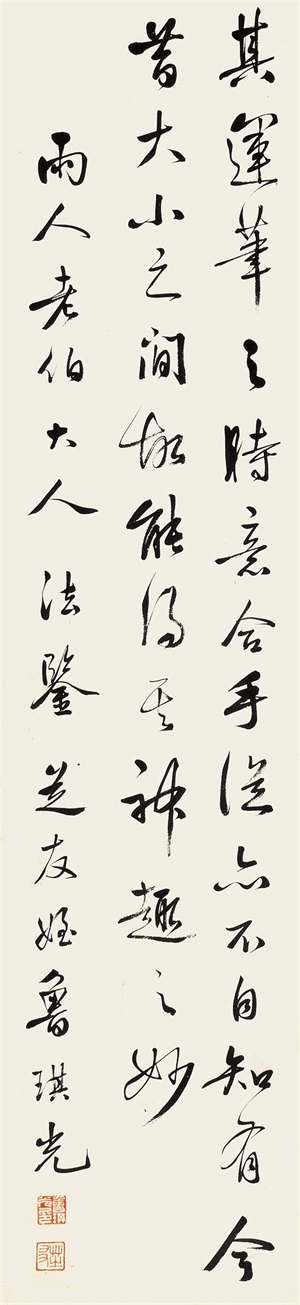 其運筆之時意合手從亦不自知有今
昔大小之間故能得其神趣之妙
雨人老伯大人 法鑒 芝友姪魯琪光